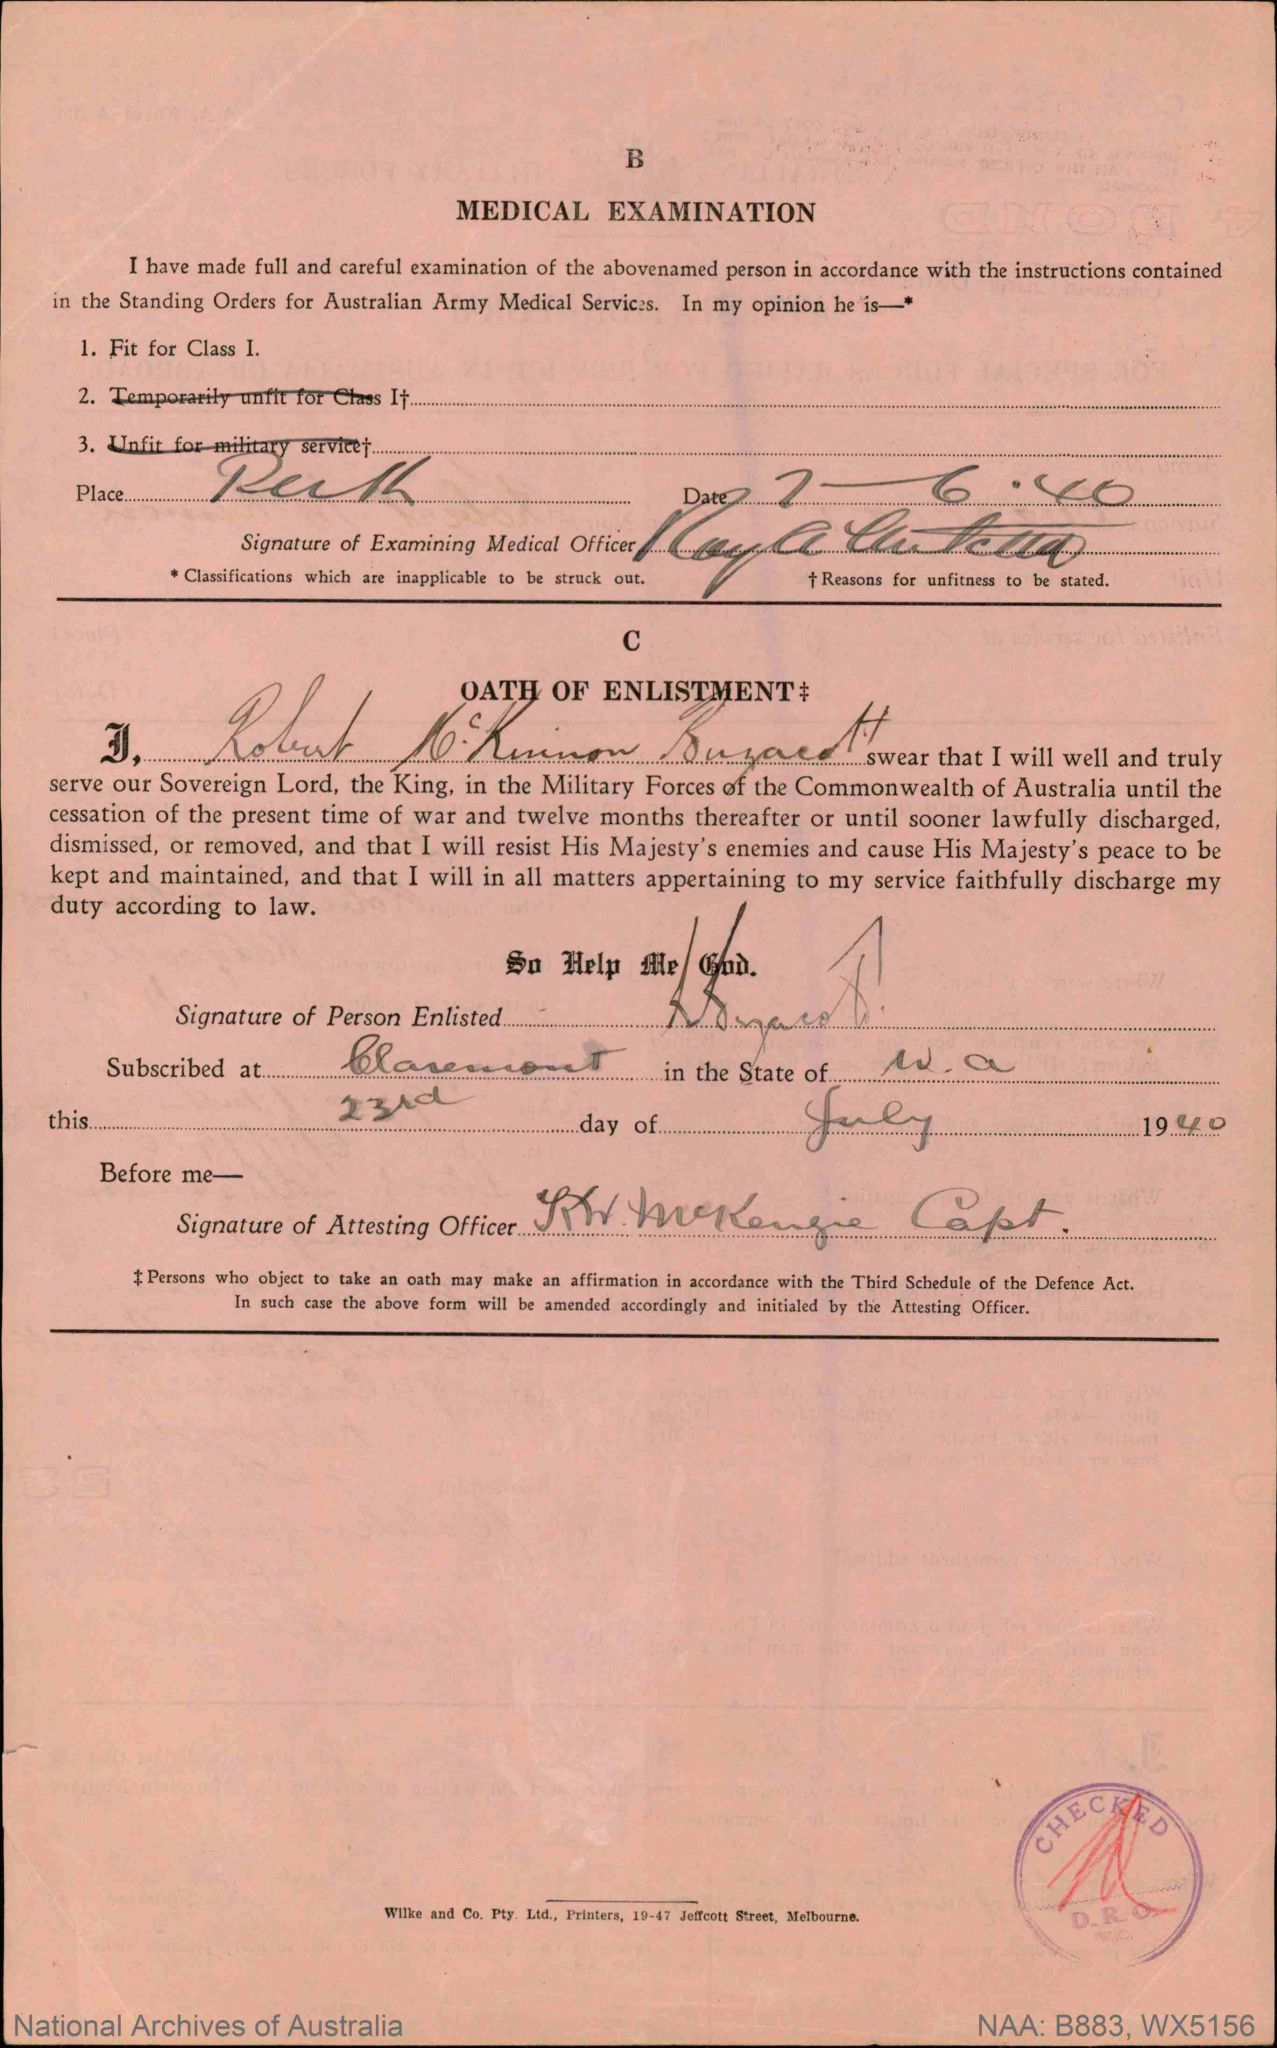 B
MEDICAL EXAMINATION
I have made full and careful examination of the abovenamed person in accordance with the instructions contained
in the Standing Orders for Australian Army Medical Services. In my opinion he is—*
1. Fit for Class I.
2. Temporarily unfit for Class I†
3. Unfit for military service†
Place Perth Date 7-6-40
Signature of Examining Medical Officer
* Classifications which are inapplicable to be struck out. † Reasons for unfitness to be stated.
C
OATH OF ENLISTMENT‡
I, Robert McKinnon Buzacott swear that I will well and truly
serve our Sovereign Lord, the King, in the Military Forces of the Commonwealth of Australia until the
cessation of the present time of war and twelve months thereafter or until sooner lawfully discharged,
dismissed, or removed, and that I will resist His Majesty's enemies and cause His Majesty's peace to be
kept and maintained, and that I will in all matters appertaining to my service faithfully discharge my
duty according to law.
So Help Me God.
Signature of Person Enlisted Buzacott.
Subscribed at Claremont in the State of W.A
this 23rd day of July 1940
Before me—
Signature of Attesting Officer McKenzie Capt.
‡ Persons who object to take an oath may make an affirmation in accordance with the Third Schedule of the Defence Act.
In such case the above form will be amended accordingly and initialed by the Attesting Officer.
CHECKED
D.R.O.
W.C.
Wilke and Co. Pty. Ltd., Printers, 19-47 Jeffcott Street, Melbourne.
National Archives of Australia NAA: B883, WX5156